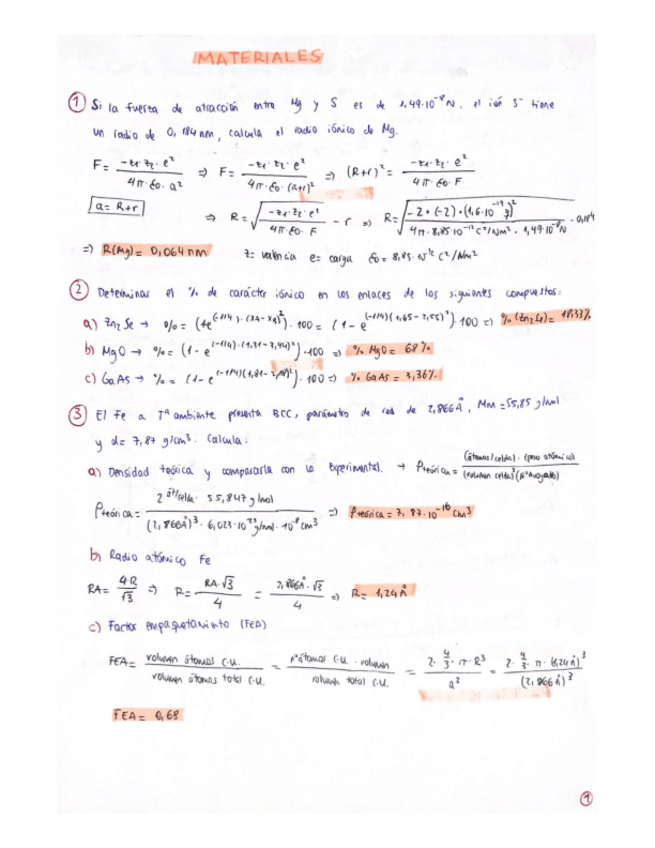 MATERIALES
① Si la fuerza de atracción entre Mg y S es de 1,49·10⁻⁸ N, el ión S⁻ tiene
un radio de 0,184 nm, calcula el radio iónico de Mg.
F = -z₁·z₂·e² / 4π·ε₀·a² ⇒ F = -z₁·z₂·e² / 4π·ε₀·(R+r)² ⇒ (R+r)² = -z₁·z₂·e² / 4π·ε₀·F
a = R+r ⇒ R = √(-z₁·z₂·e² / 4π·ε₀·F) - r ⇒ R = √(-2·(-2)·(1,6·10⁻¹⁹)² / 4π·8,85·10⁻¹² C²/Nm²·1,49·10⁻⁸ N) - 0,184
⇒ R(Mg) = 0,064 nm z = valencia e = carga ε₀ = 8,85·10⁻¹² C²/Nm²
② Determinar el % de carácter iónico en los enlaces de los siguientes compuestos:
a) Zn₂Se → % = (1-e^(-1/4)·(XA-XB)²)·100 = (1-e^(-1/4)(1,65-2,55)²)·100 ⇒ % (Zn₂Se) = 18,33%
b) MgO → % = (1-e^(-1/4)·(1,31-3,44)²)·100 ⇒ % MgO = 68%
c) GaAs → % = (1-e^(-1/4)(1,81-2,18)²)·100 ⇒ % GaAs = 3,36%
③ El Fe a Tª ambiente presenta BCC, parámetro de red de 2,866Å, Mm = 55,85 g/mol
y d = 7,87 g/cm³. Calcula:
a) Densidad teórica y compararla con la experimental. → ρteórica = (átomos/celda)·(peso atómico) / (volumen celda)³(Nº Avogadro)
ρteórica = 2 át/celda·55,847 g/mol / (2,866Å)³·6,023·10²³ g/mol·10⁻⁸ cm³ ⇒ ρteórica = 7,87·10⁻¹⁶ C/m³
b) Radio atómico Fe
RA = 4·R / √3 ⇒ R = RA·√3 / 4 = 2,866Å·√3 / 4 ⇒ R = 1,24Å
c) Factor empaquetamiento (FEA)
FEA = volumen átomos C.U. / volumen átomos total C.U. = nº átomos C.U.·volumen / volumen total C.U. = 2·4/3·π·R³ / a³ = 2·4/3·π·(1,24Å)³ / (2,866Å)³
FEA = 0,68
1